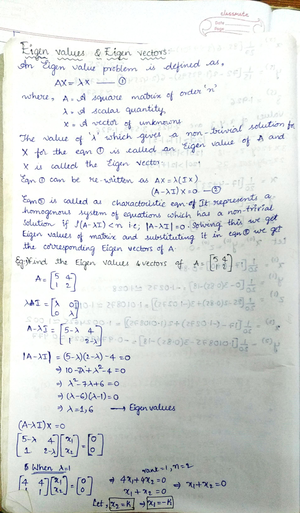 classmate
Date
Page
Eigen values & Eigen vectors
An Eigen value problem is defined as,
AX = λX —— ①
where, A = A square matrix of order 'n'
λ = A scalar quantity,
X = A vector of unknowns
The value of 'λ' which gives a non-trivial solution for
X for the eqn ① is called an Eigen value of A and
X is called the Eigen vector.
Eqn ① can be re-written as AX = λ(IX)
(A-λI)X = 0 —②
Eqn② is called as characteristic eqn of It represents a
homogenous system of equations which has a non-trivial
solution if ρ(A-λI) < n i.e, |A-λI| = 0. Solving this we get
Eigen values of matrix and substituting it in eqn ② we get
the corresponding Eigen vectors of A
Eg: Find the Eigen values & vectors of A = [5 4
1 2]
A = [5 4
1 2]
λI = [λ 0
0 λ]
A-λI = [5-λ 4
1 2-λ]
|A-λI| = (5-λ)(2-λ)-4 = 0
⇒ 10-7λ+λ²-4 = 0
⇒ λ²-7λ+6 = 0
⇒ (λ-6)(λ-1) = 0
⇒ λ = 1,6 → Eigen values
(A-λI)X = 0
[5-λ 4
1 2-λ] [x₁
x₂] = [0
0]
When λ=1
rank = 1, n = 2
[4 4
1 1] [x₁
x₂] = [0
0] ⇒ 4x₁+4x₂ = 0
x₁+x₂ = 0 ⇒ x₁+x₂ = 0
Let, x₂ = k ⇒ x₁ = -k